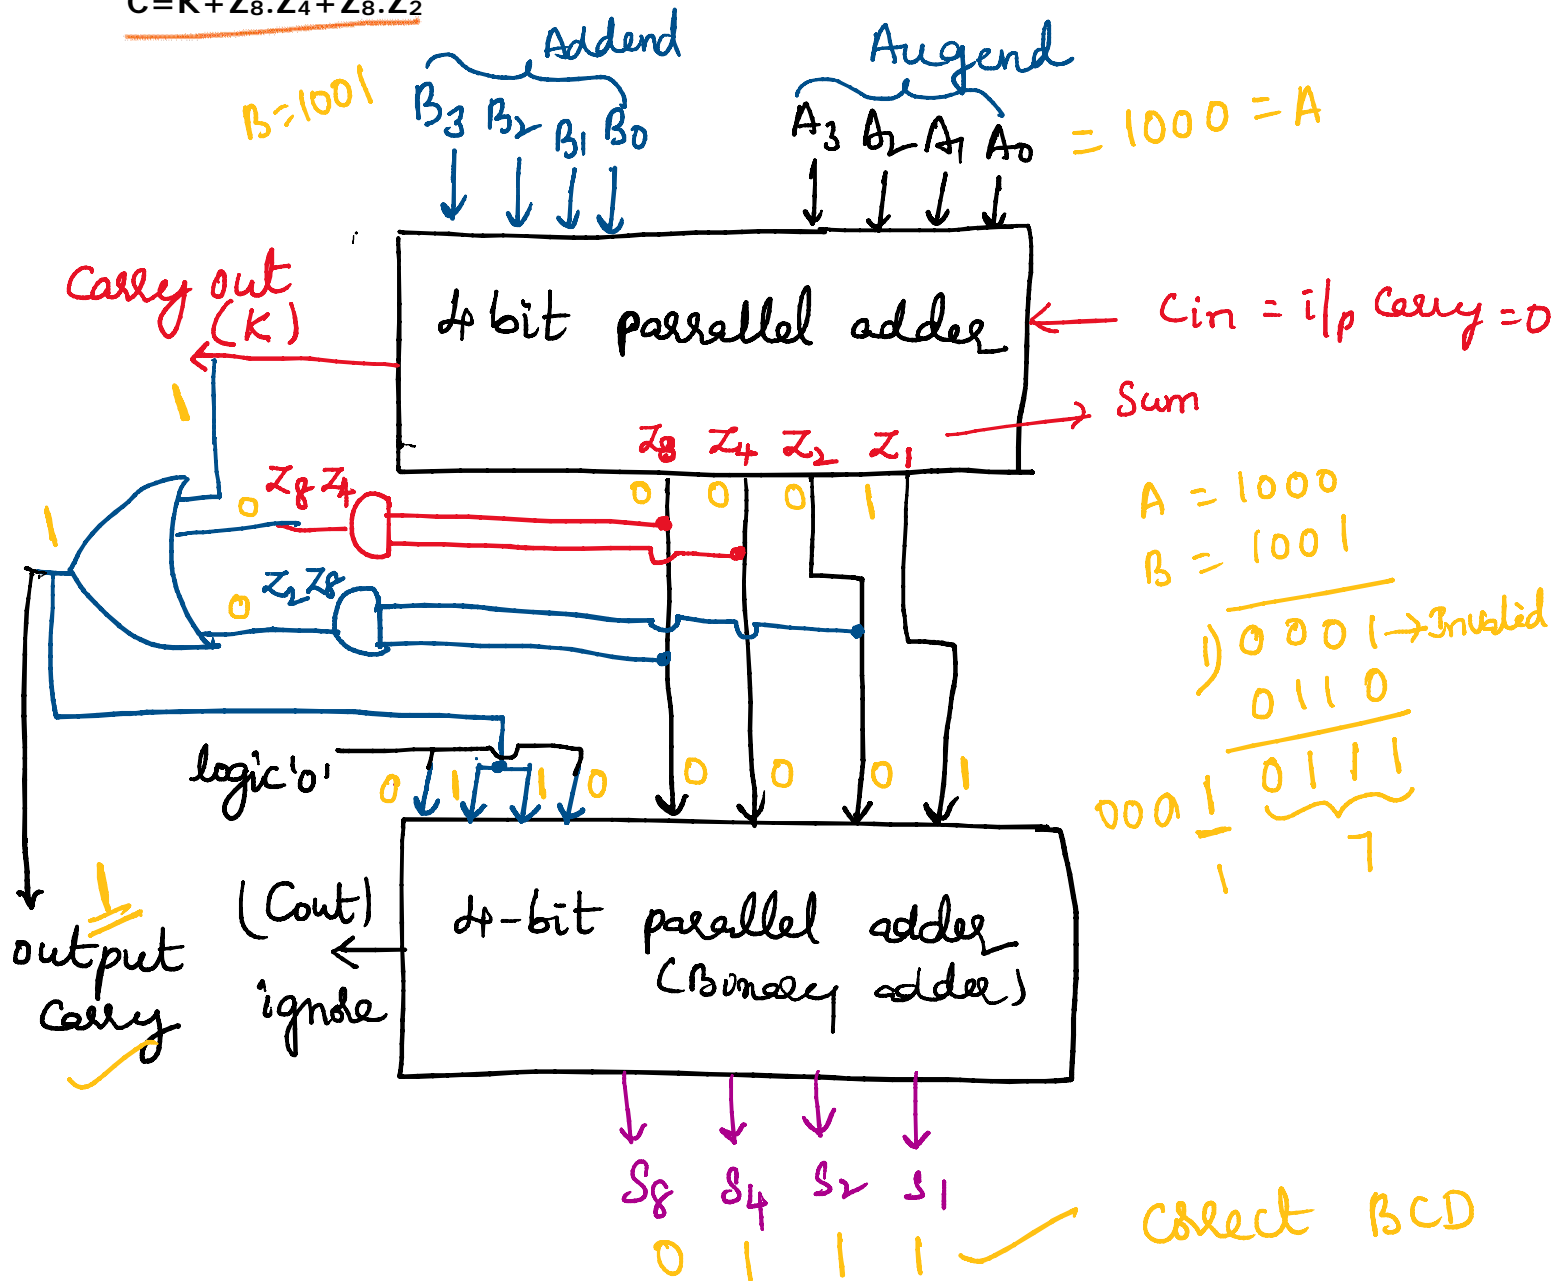 C=K+Z₈.Z₄+Z₈.Z₂
Addend
Augend
B=1001
B3 B2 B1 B0
A3 A2 A1 A0
= 1000 = A
Carry out
(K)
4 bit parrallel adder
Cin = i/p Carry = 0
1
Sum
Z8 Z4 Z2 Z1
0 0 0 1
Z8 Z4
0
1
Z2 Z8
0
A = 1000
B = 1001
1) 0001 → Invalid
0110
0001 0111
1 7
logic '0'
0 1 1 0
0 0 0 1
1
output
carry
(Cout)
ignore
4-bit parallel adder
(Binary adder)
S8 S4 S2 S1
0 1 1 1
Correct BCD